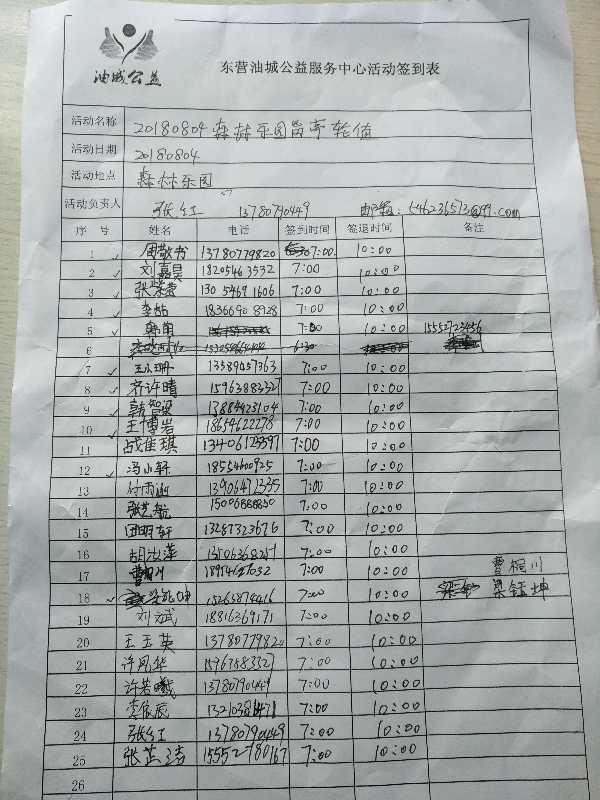 油城公益
东营油城公益服务中心活动签到表
活动名称 20180804 森林乐园岗亭轮值
活动日期 20180804
活动地点 森林乐园
活动负责人 张红 13780790449 邮箱:
序号 姓名 电话 签到时间 签退时间 备注
1 周敬书 13780779820 7:00 10:00
2 刘嘉昊 18205463532 7:00 10:00
3 张荣蓉 13054691606 7:00 10:00
4 李喆 18366908928 7:00 10:00
5 韩甬 7:00 10:00 15552723456
6 6:30
7 王小珊 13589457363 7:00 10:00
8 齐许晴 15963883321 7:00 10:00
9 韩智源 13884423104 7:00 10:00
10 王博岩 18654622278 7:00 10:00
11 战佳琪 13406123597 7:00 10:00
12 冯小轩 18554600925 7:00 10:00
13 付雨涵 13906472335 7:00 10:00
14 7:00 10:00
15 田明轩 13287323676 7:00 10:00
16 13506368257 7:00 10:00
17 曹桐川 7:00 10:00 曹桐川
18 15265874416 7:00 10:00 梁钰坤
19 刘斌 18816369171 7:00 10:00
20 王玉英 13780779820 7:00 10:00
21 许风华 7:00 10:00
22 许若曦 13780790449 7:00 10:00
23 李依辰 7:00 10:00
24 张红 13780790449 7:00 10:00
25 张芷涵 15552780167 7:00 10:00
26